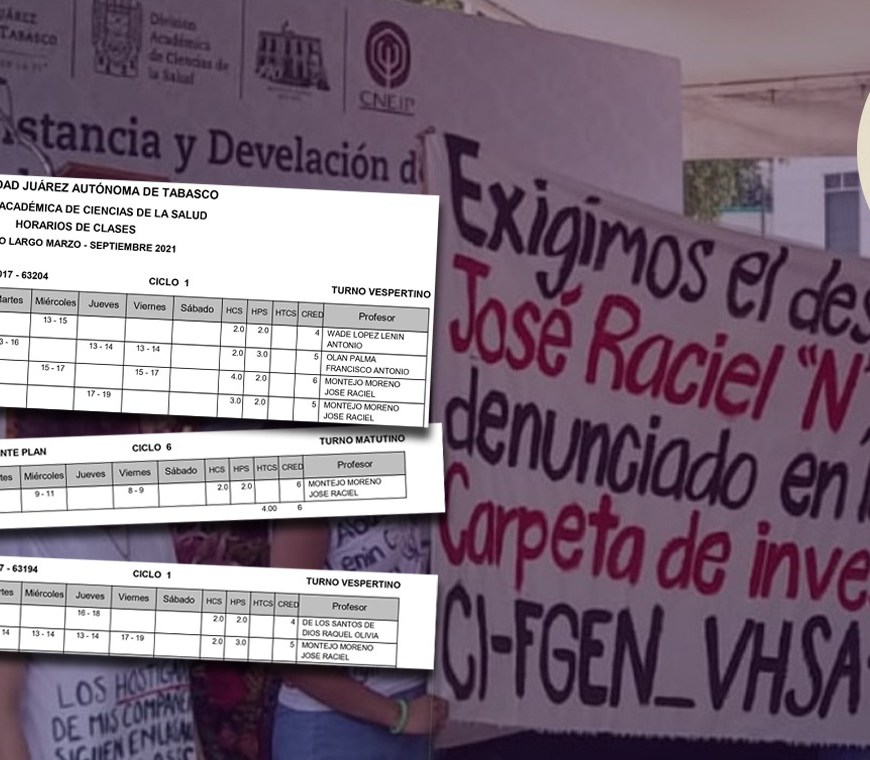 JUÁREZ
TABASCO
División
Académica
de Ciencias de
la Salud
CNEIP
stancia y Develación d
DAD JUÁREZ AUTÓNOMA DE TABASCO
ACADÉMICA DE CIENCIAS DE LA SALUD
HORARIOS DE CLASES
O LARGO MARZO - SEPTIEMBRE 2021
017 - 63204 CICLO 1 TURNO VESPERTINO
Martes Miércoles Jueves Viernes Sábado HCS HPS HTCS CRED Profesor
13 - 15 2.0 2.0 4 WADE LOPEZ LENIN
ANTONIO
3 - 16 13 - 14 13 - 14 2.0 3.0 5 OLAN PALMA
FRANCISCO ANTONIO
15 - 17 15 - 17 4.0 2.0 6 MONTEJO MORENO
JOSE RACIEL
17 - 19 3.0 2.0 5 MONTEJO MORENO
JOSE RACIEL
NTE PLAN CICLO 6 TURNO MATUTINO
tes Miércoles Jueves Viernes Sábado HCS HPS HTCS CRED Profesor
9 - 11 8 - 9 2.0 2.0 6 MONTEJO MORENO
JOSE RACIEL
4.00 6
7 - 63194 CICLO 1 TURNO VESPERTINO
rtes Miércoles Jueves Viernes Sábado HCS HPS HTCS CRED Profesor
16 - 18 2.0 2.0 4 DE LOS SANTOS DE
DIOS RAQUEL OLIVIA
14 13 - 14 13 - 14 17 - 19 2.0 3.0 5 MONTEJO MORENO
JOSE RACIEL
Exigimos el des
José Raciel "N"
denunciado en l
Carpeta de inve
CI-FGEN_VHSA-
LOS HOSTIGAN
DE MIS COMPAÑE
SIGUEN EN LAS